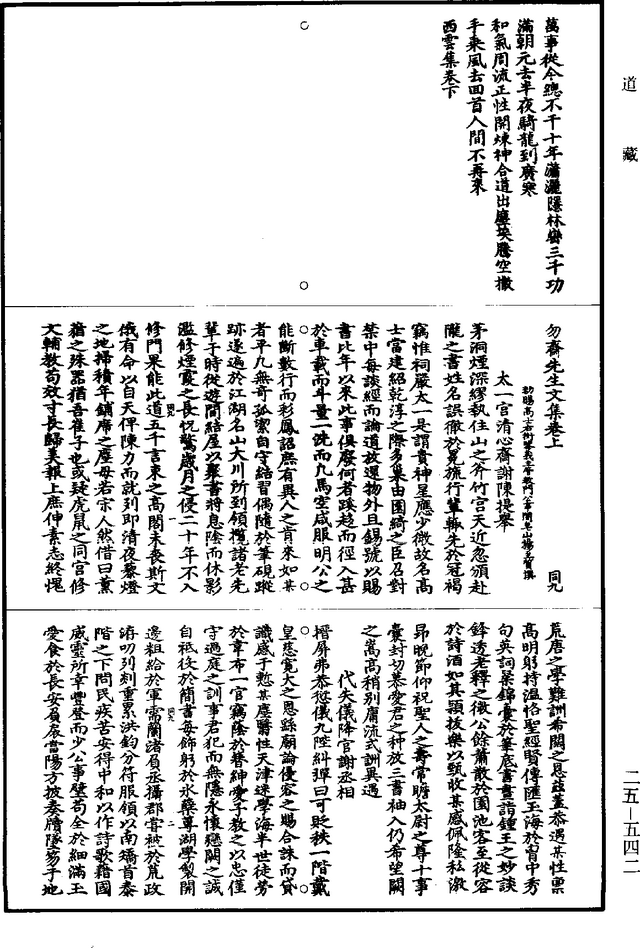 道藏
萬事從今總不干十年瀟灑隱林巒三千功
滿朝元去半夜騎龍到廣寒
和氣周流正性開煉神合道出塵埃騰空撒
手乘風去回首人間不再來
西雲集卷下
勿齋先生文集卷上
同九
太一宮清心齋謝陳提舉
茅洞煙深繆執住山之斧竹宮天近忽頒赴
隴之書姓名誤徹於冕旒行輩輒先於冠褐
竊惟祠嚴太一是謂貴神星應少微故名高
士當建紹乾淳之際多集由園綺之臣召對
禁中每談經而論道放還物外且錫號以賜
書比年以來此事俱廢何者蹊趨而徑入甚
於車載而斗量一洗而凡馬空咸服明公之
能斷數行而彩鳳詔庶有異人之肯來如某
者平凡無奇孤潔自守結習偶隨於筆硯蹤
跡遂遍於江湖名山大川所到領攬諸老先
輩于時從遊間結屋以聚書將息陰而休影
濫修煙霞之長怳驚歲月之侵二十年不入
修門果能此道五千言束之高閣未喪斯文
俄有命以自天俾陳力而就列即清夜藜燈
之地掃積年鋪席之塵毋若宗人然借曰薰
蕕之殊器猶吾崔子也或疑虎鼠之同宮修
文輔教苟效寸長歸美報上庶伸素志終愧
荒唐之學難訓希闊之恩茲蓋恭遇某性稟
高明躬持溫恪聖經賢傳匯玉海於胷中秀
句英詞粲錦囊於筆底書畫詣鍾王之妙談
鋒透老釋之微公餘蕭散於園池客至從容
於詩酒如其穎拔樂以甄收某感佩隆私激
昂晚節仰祝聖人之壽常瞻太尉之尊十事
囊封切慕愛君之种放三書袖入仍希望闕
之嵩高稍別庸流式訓異遇
代失儀降官謝丞相
搢屏弗恭愆儀九陛糾彈曰可貶秩一階戴
皇慈寬大之恩踩廟論優容之賜合誅而貸
識感于慙某應醫性天津迷學海半世徒勞
於韋布一官竊陰於替紳愛子教之以忠僅
守過庭之訓事君犯而無隱永懷戀闕之誠
自祗役於簡書每飾躬於氷蘗尊湖學製開
邊粗給於軍需蘭渚負丞攝郡嘗被於荒政
洊叨列剡重累洪鈞分符服領以南矯首泰
階之下問民疾苦安得中和以作詩歌藉國
威靈所幸豐登而少公事璧苟全於細滿玉
愛食於長安負扆當陽方披奏牘墜笏于地
二五—五四二